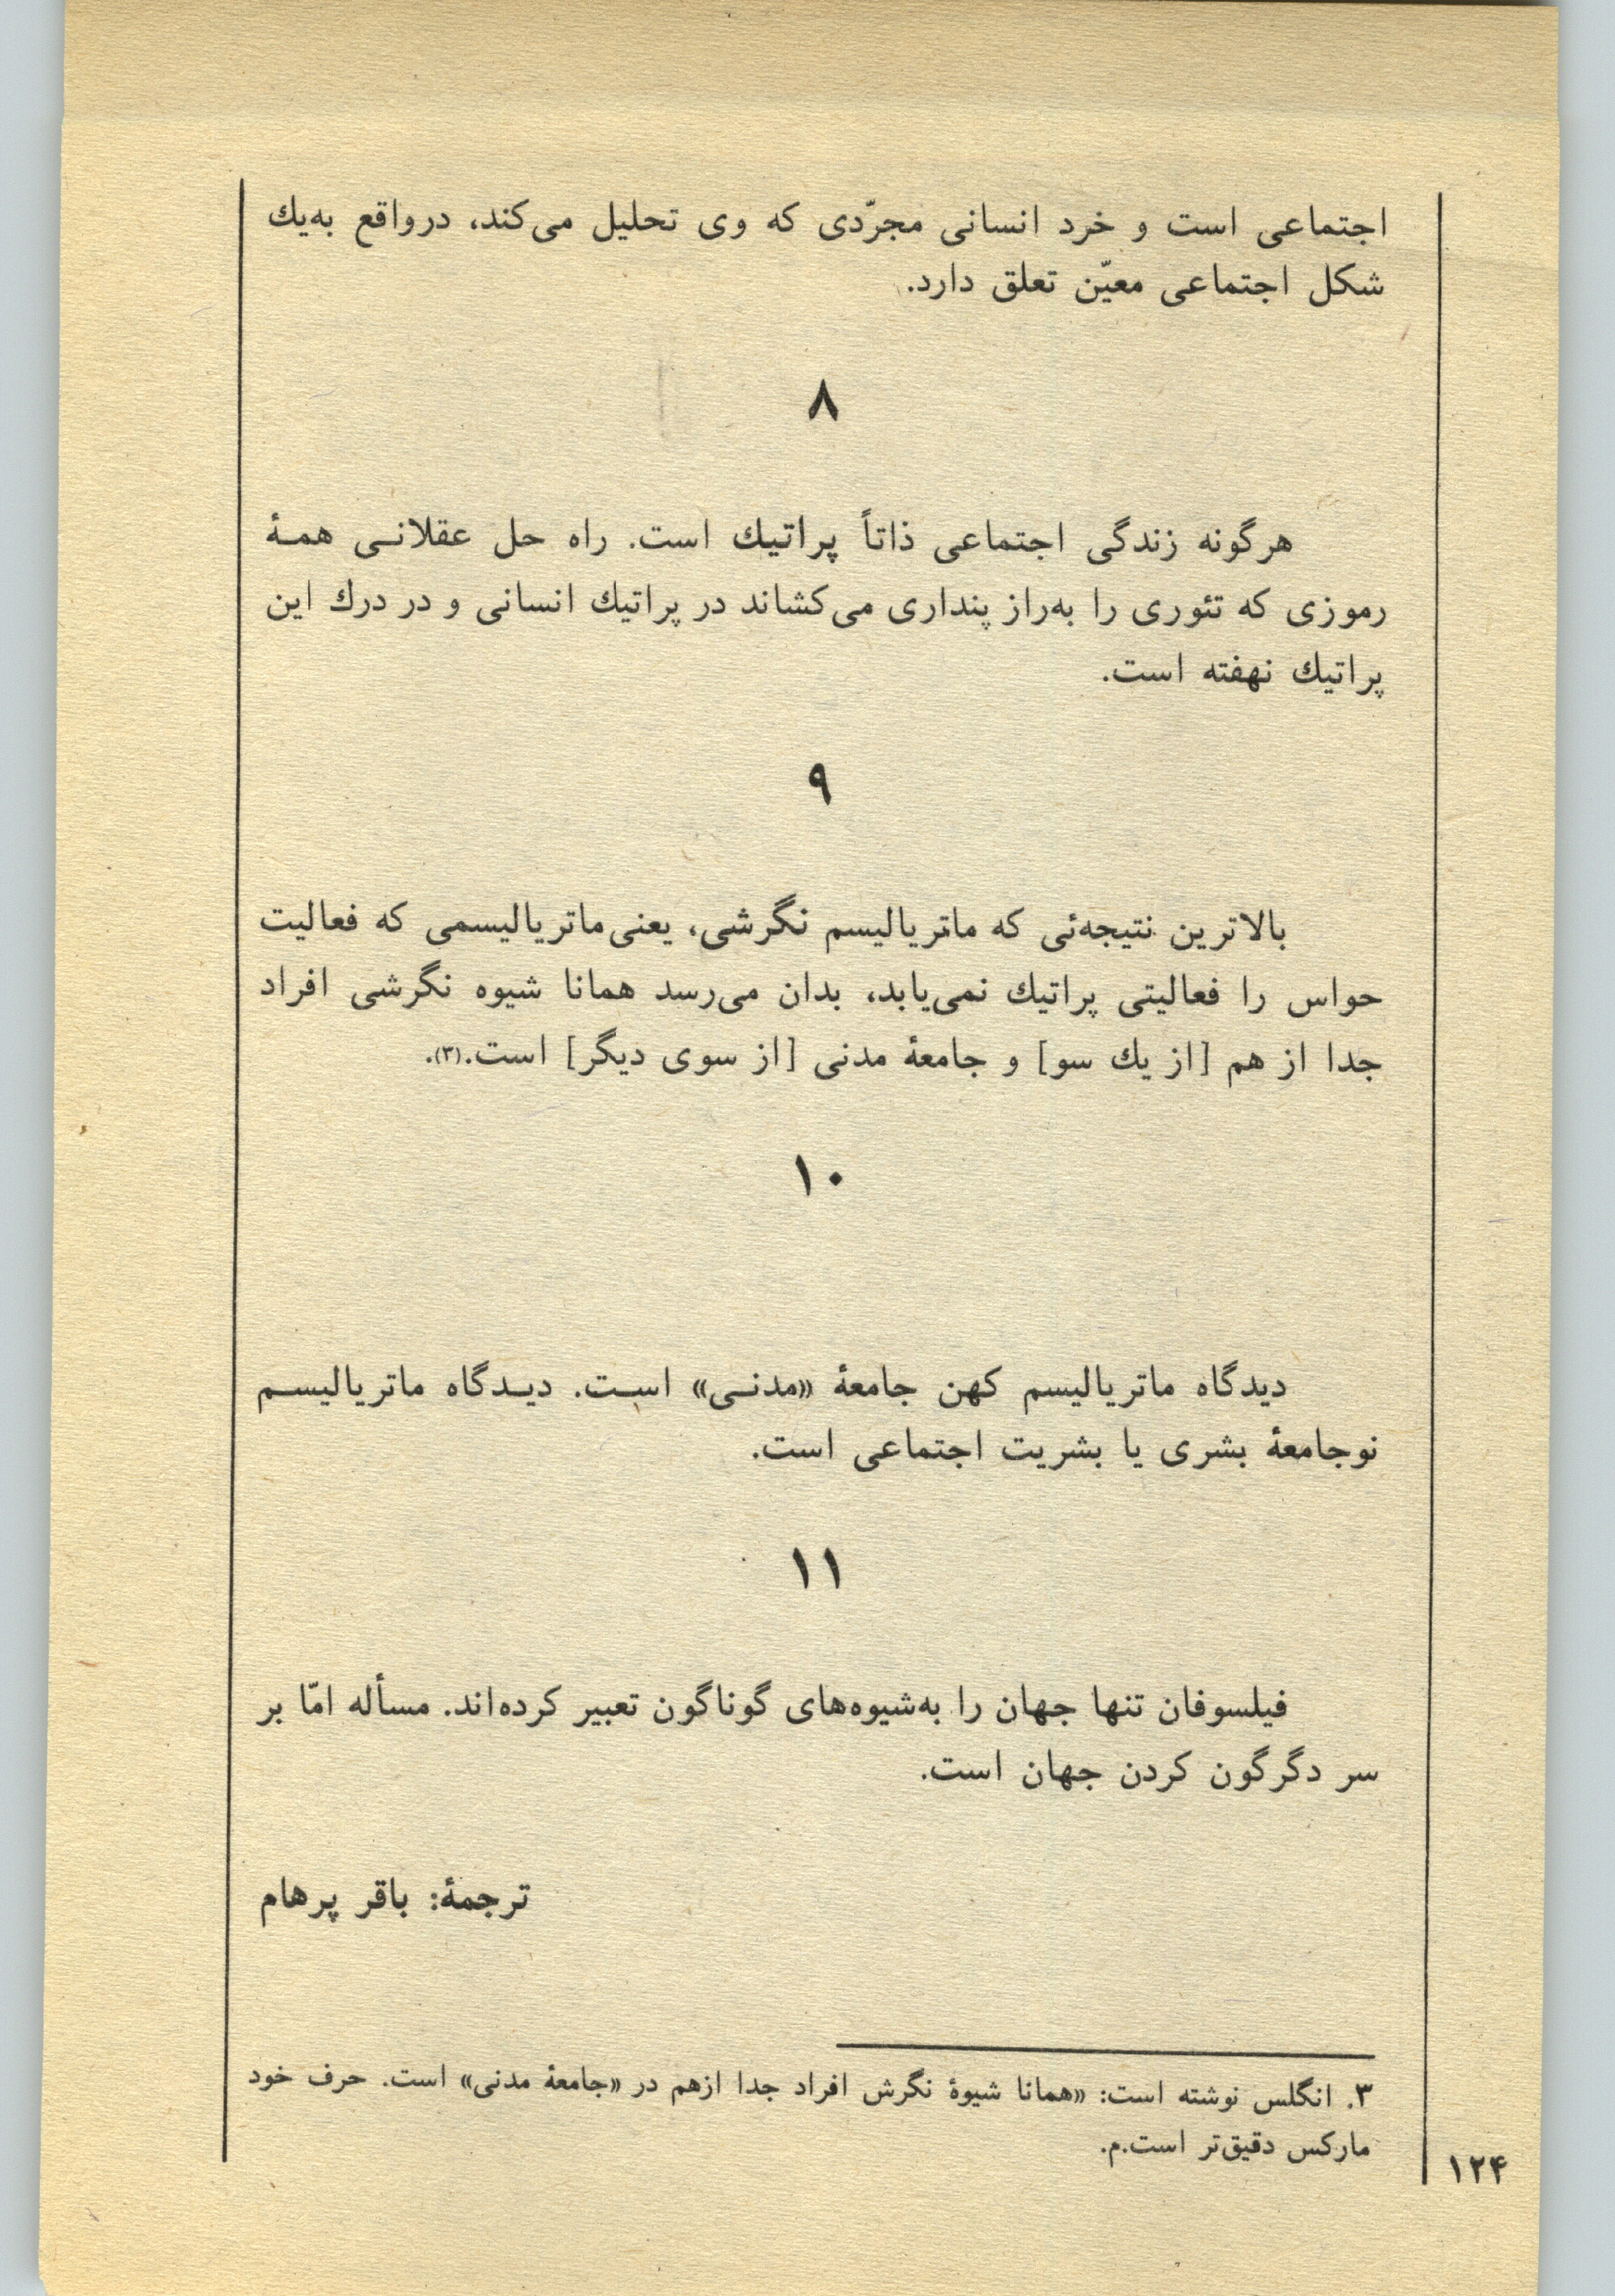 اجتماعی است و خرد انسانی مجرّدی که وی تحلیل می‌کند، درواقع به‌یك
شکل اجتماعی معیّن تعلق دارد.
۸
هرگونه زندگی اجتماعی ذاتاً پراتیك است. راه حل عقلانـی همـۀ
رموزی که تئوری را به‌راز پنداری می‌کشاند در پراتیك انسانی و در درك این
پراتیك نهفته است.
۹
بالاترین نتیجه‌ئی که ماتریالیسم نگرشی، یعنی ماتریالیسمی که فعالیت
حواس را فعالیتی پراتیك نمی‌یابد، بدان می‌رسد همانا شیوه نگرشی افراد
جدا از هم [از یك سو] و جامعۀ مدنی [از سوی دیگر] است.(۳).
۱۰
دیدگاه ماتریالیسم کهن جامعۀ «مدنـی» اسـت. دیـدگاه ماتریالیسـم
نوجامعۀ بشری یا بشریت اجتماعی است.
۱۱
فیلسوفان تنها جهان را به‌شیوه‌های گوناگون تعبیر کرده‌اند. مسأله امّا بر
سر دگرگون کردن جهان است.
ترجمۀ: باقر پرهام
۳. انگلس نوشته است: «همانا شیوۀ نگرش افراد جدا ازهم در «جامعۀ مدنی» است. حرف خود
مارکس دقیق‌تر است.م.
۱۲۴